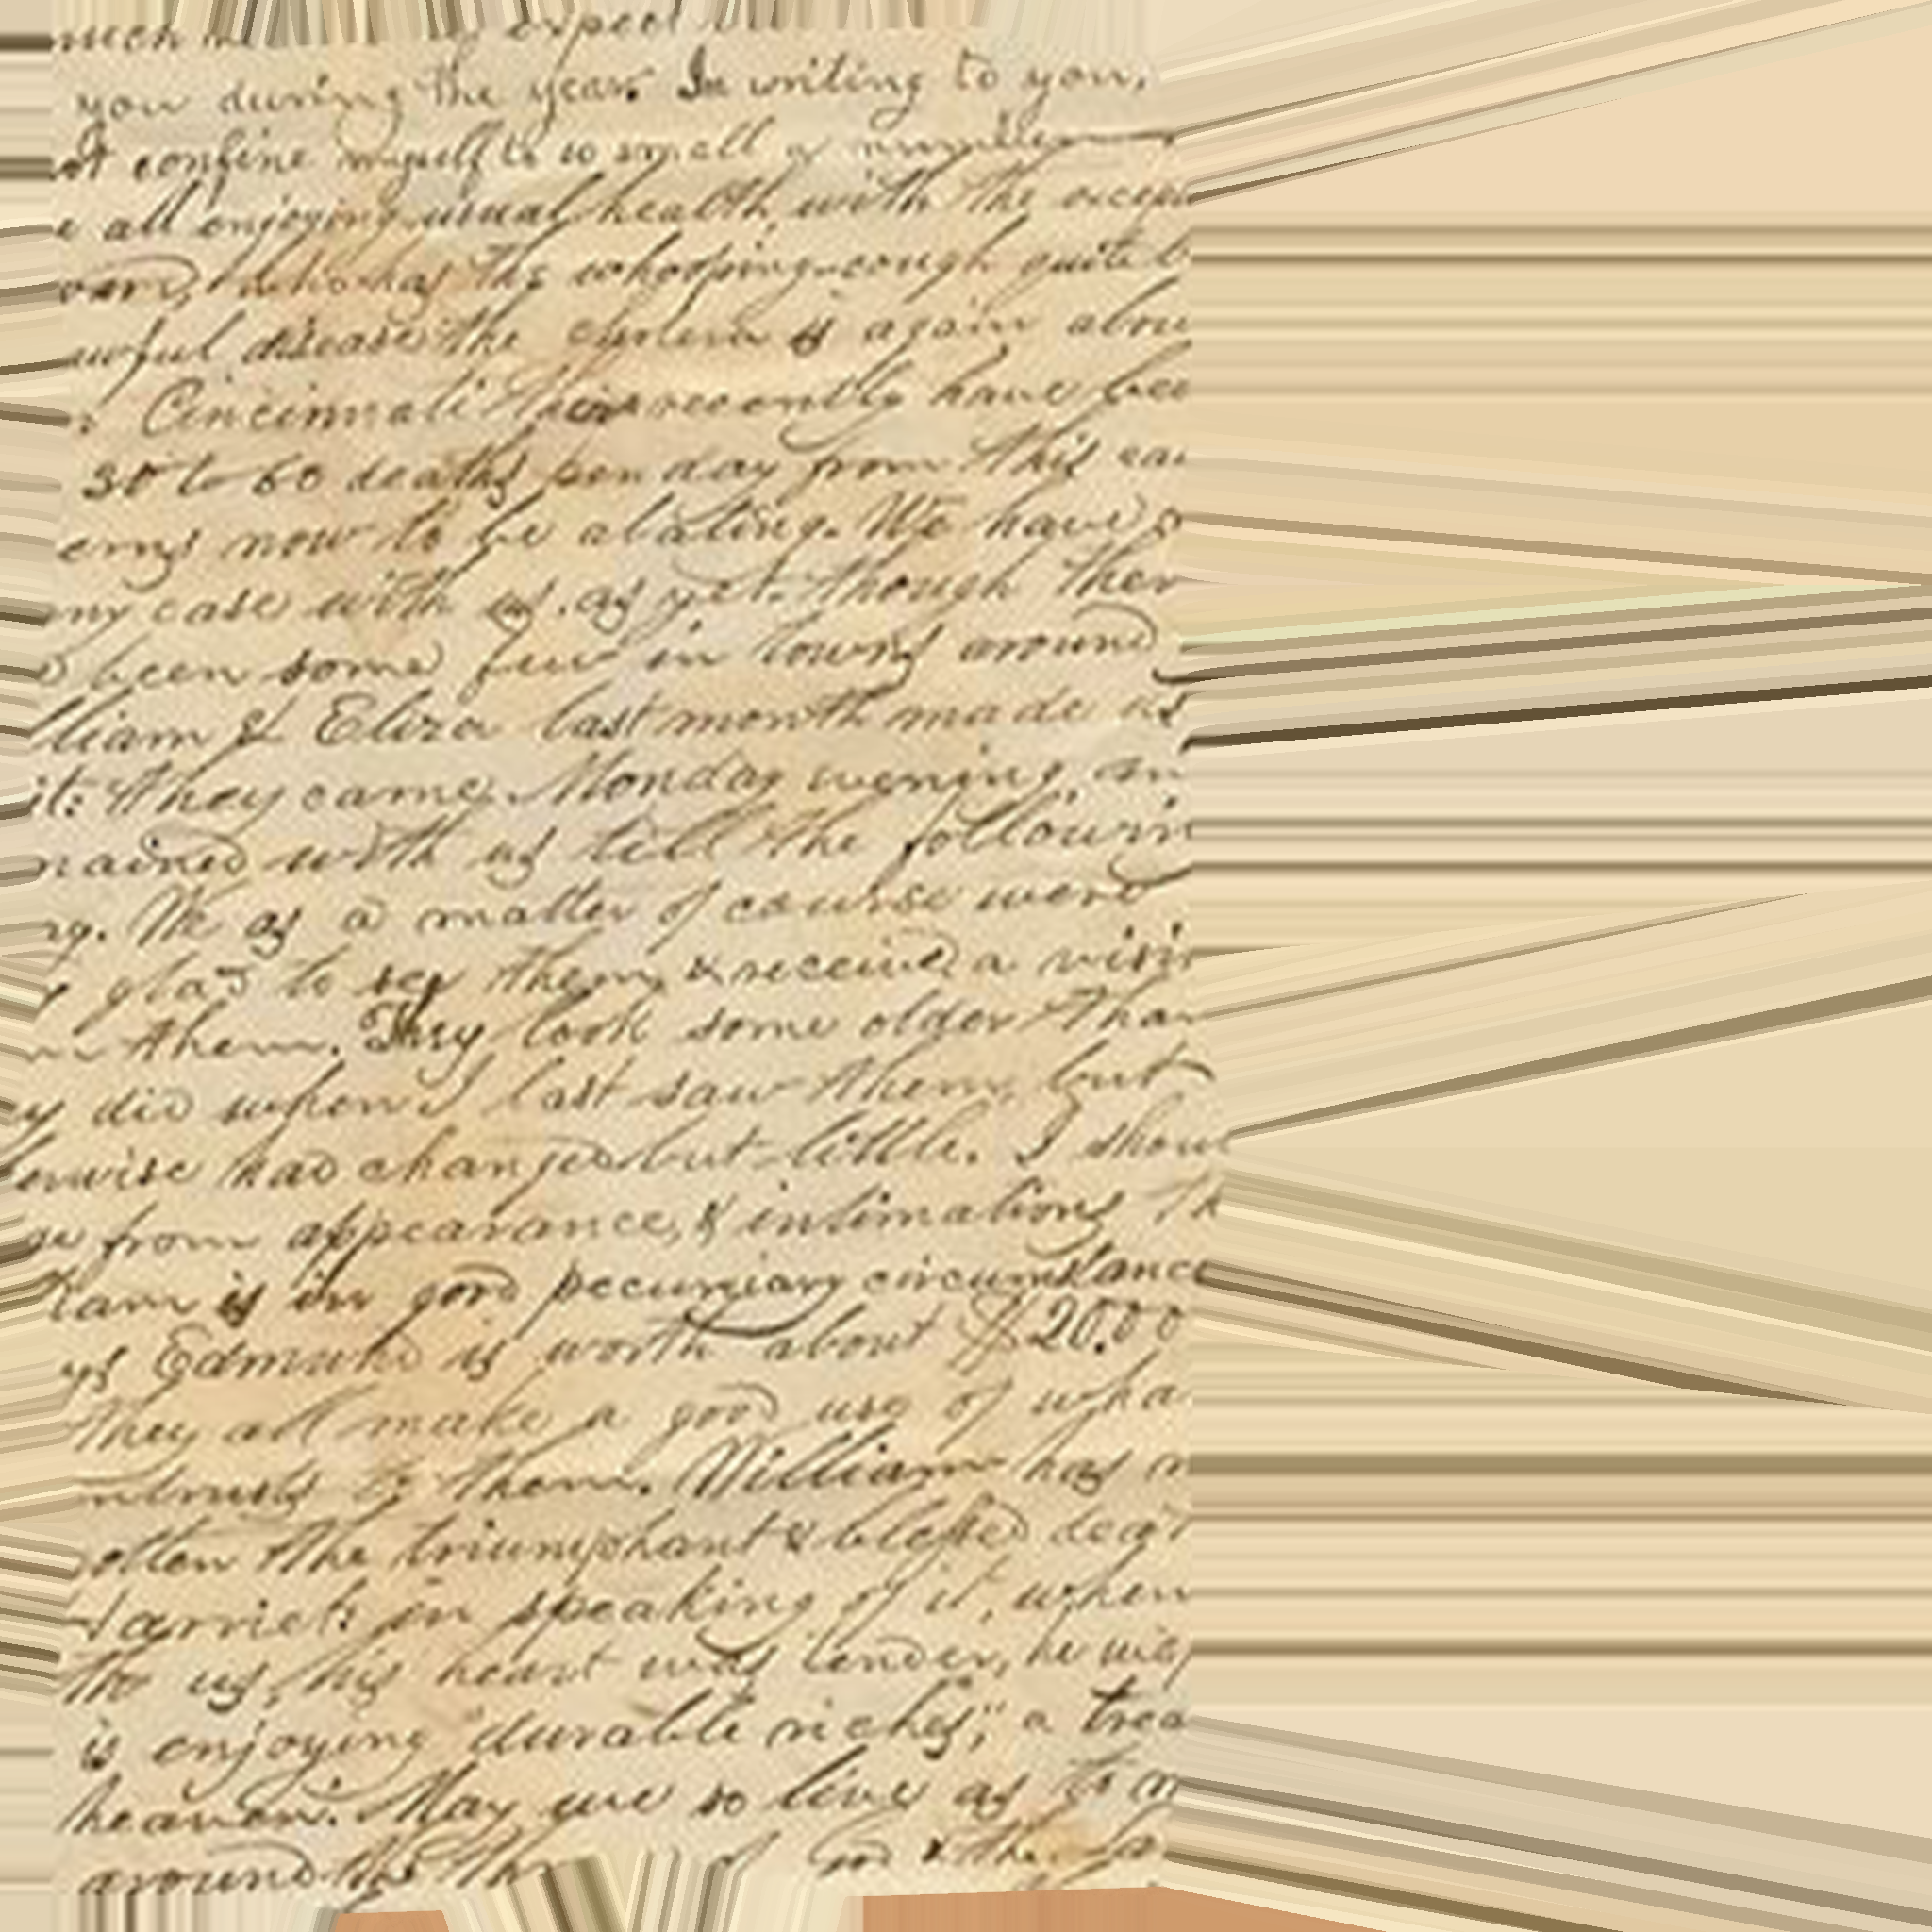 much expect
you during the year. In writing to you,
ot confine myself to so small a number
e all enjoying usual health with the excep
who has the whooping-cough quite b
awful disease the cholera is again abou
Cincinnati there recently have bee
50 to 60 deaths per day from this cau
ems now to be abating. We have
ny case with us, as yet. though ther
been some few in towns around
lliam & Eliza last month made us
it: they came Monday evening, an
mained with us till the followin
ng. We as a matter of course were
y glad to see them, & receive a visit
m them. They look some older than
y did when I last saw them, but
erwise had changed but little. I shou
ge from appearance, & intimations th
liam is in good pecuniary circumstance
ys Edmund is worth about $20.00
They all make a good use of wha
ntrusts to them. William has n
otten the triumphant & blessed deat
Harriet: in speaking of it, when
to us, his heart was tender, he
is enjoying "durable riches," a trea
heaven. May we so live as to m
around the of God & the La